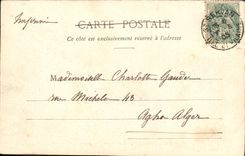 Imprimé
CARTE POSTALE
Ce côté est exclusivement réservé à l'adresse
Mademoiselle Charlotte Gauder
rue Michelet 48
Agha Alger